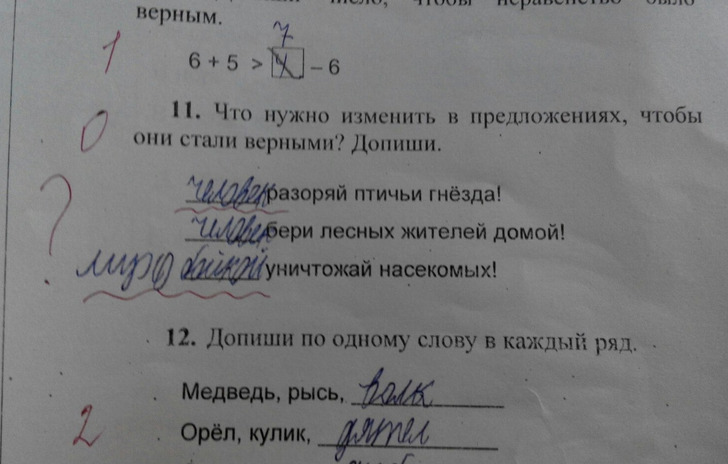 число, чтобы неравенство было
верным.
7
1
6 + 5 > 4 – 6
11. Что нужно изменить в предложениях, чтобы
0
они стали верными? Допиши.
человек разоряй птичьи гнёзда!
?
человек бери лесных жителей домой!
уничтожай насекомых!
12. Допиши по одному слову в каждый ряд.
Медведь, рысь, волк
2
Орёл, кулик, дятел